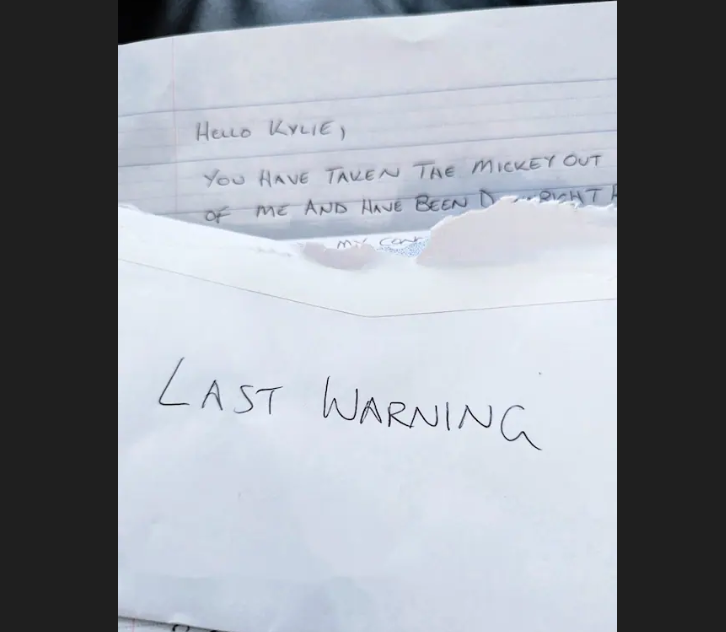 Hello Kylie,
You HAVE TAKEN THE MICKEY OUT
OF ME AND HAVE BEEN
MY
LAST WARNING